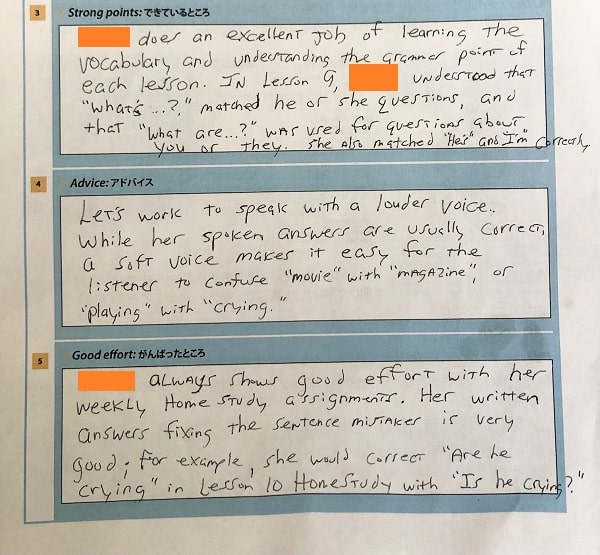 3 Strong points: できているところ
does an excellent job of learning the
vocabulary and understanding the grammar point of
each lesson. In Lesson 9, understood that
"what's ...?" matched he or she questions, and
that "what are...?" was used for questions about
you or they. She also matched "He's" and "I'm" correctly.
4 Advice: アドバイス
Let's work to speak with a louder voice.
While her spoken answers are usually correct,
a soft voice makes it easy for the
listener to confuse "movie" with "magazine", or
"playing" with "crying."
5 Good effort: がんばったところ
always shows good effort with her
weekly Home Study assignments. Her written
answers fixing the sentence mistakes is very
good; for example, she would correct "Are he
crying" in Lesson 10 HomeStudy with "Is he crying?"